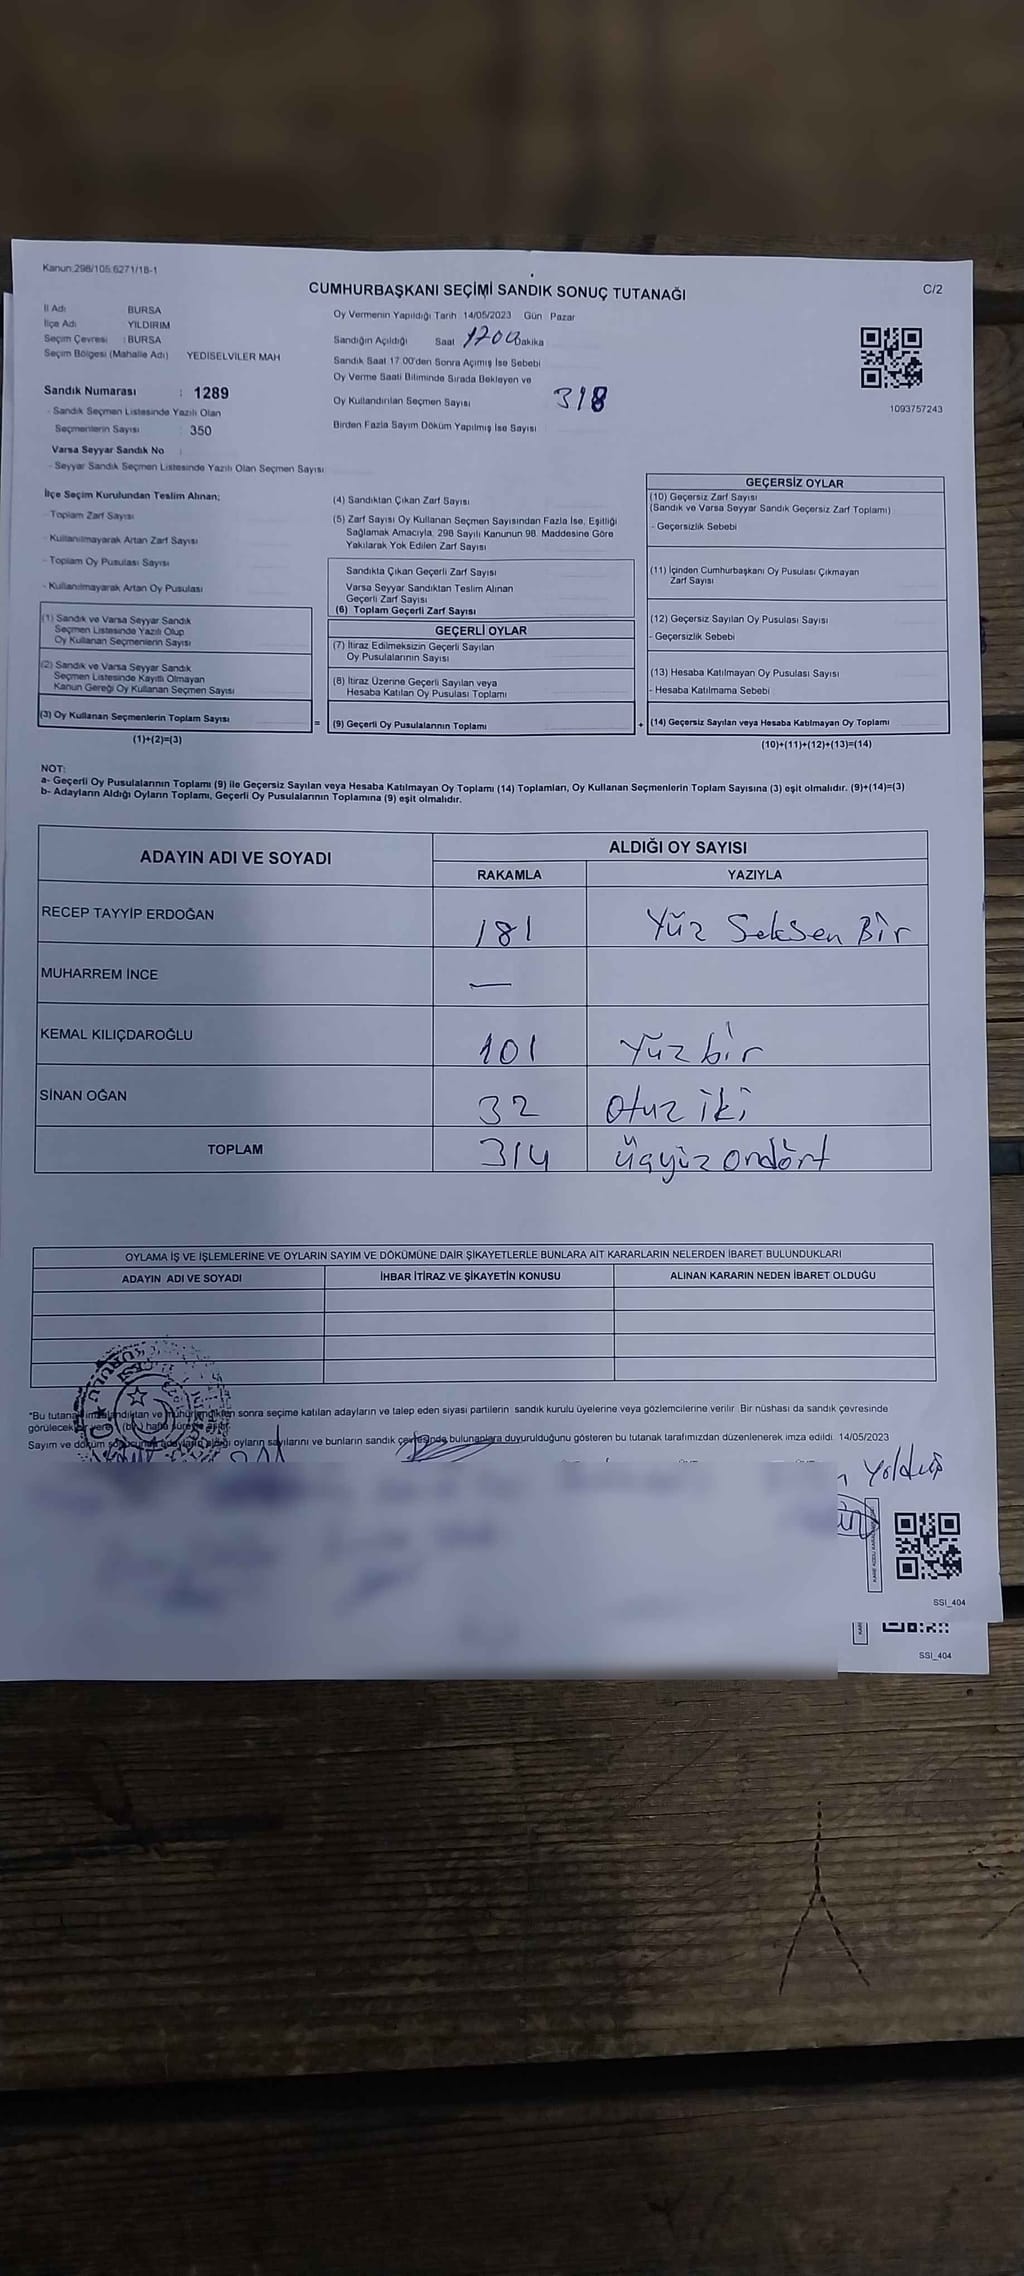 Kanun:298/105.6271/18-1
CUMHURBAŞKANI SEÇİMİ SANDIK SONUÇ TUTANAĞI
C/2
İl Adı BURSA
İlçe Adı YILDIRIM
Seçim Çevresi : BURSA
Seçim Bölgesi (Mahalle Adı) YEDISELVILER MAH
Sandık Numarası : 1289
- Sandık Seçmen Listesinde Yazılı Olan
Seçmenlerin Sayısı : 350
Varsa Seyyar Sandık No
- Seyyar Sandık Seçmen Listesinde Yazılı Olan Seçmen Sayısı
Oy Vermenin Yapıldığı Tarih 14/05/2023 Gün : Pazar
Sandığın Açıldığı Saat 1700 Dakika
Sandık Saat 17.00'den Sonra Açımış İse Sebebi
Oy Verme Saati Bitiminde Sırada Bekleyen ve
Oy Kullandırılan Seçmen Sayısı 318
Birden Fazla Sayım Döküm Yapılmış İse Sayısı
1093757243
İlçe Seçim Kurulundan Teslim Alınan;
- Toplam Zarf Sayısı
- Kullanılmayarak Artan Zarf Sayısı
- Toplam Oy Pusulası Sayısı
- Kullanılmayarak Artan Oy Pusulası
(1) Sandık ve Varsa Seyyar Sandık
Seçmen Listesinde Yazılı Olup
Oy Kullanan Seçmenlerin Sayısı
(2) Sandık ve Varsa Seyyar Sandık
Seçmen Listesinde Kayıtlı Olmayan
Kanun Gereği Oy Kullanan Seçmen Sayısı
(3) Oy Kullanan Seçmenlerin Toplam Sayısı
(1)+(2)=(3)
=
(4) Sandıktan Çıkan Zarf Sayısı
(5) Zarf Sayısı Oy Kullanan Seçmen Sayısından Fazla İse, Eşitliği
Sağlamak Amacıyla, 298 Sayılı Kanunun 98. Maddesine Göre
Yakılarak Yok Edilen Zarf Sayısı
Sandıkta Çıkan Geçerli Zarf Sayısı
Varsa Seyyar Sandıktan Teslim Alınan
Geçerli Zarf Sayısı
(6) Toplam Geçerli Zarf Sayısı
GEÇERLİ OYLAR
(7) İtiraz Edilmeksizin Geçerli Sayılan
Oy Pusulalarının Sayısı
(8) İtiraz Üzerine Geçerli Sayılan veya
Hesaba Katılan Oy Pusulası Toplamı
(9) Geçerli Oy Pusulalarının Toplamı
+
GEÇERSİZ OYLAR
(10) Geçersiz Zarf Sayısı
(Sandık ve Varsa Seyyar Sandık Geçersiz Zarf Toplamı)
- Geçersizlik Sebebi
(11) İçinden Cumhurbaşkanı Oy Pusulası Çıkmayan
Zarf Sayısı
(12) Geçersiz Sayılan Oy Pusulası Sayısı
- Geçersizlik Sebebi
(13) Hesaba Katılmayan Oy Pusulası Sayısı
- Hesaba Katılmama Sebebi
(14) Geçersiz Sayılan veya Hesaba Katılmayan Oy Toplamı
(10)+(11)+(12)+(13)=(14)
NOT:
a- Geçerli Oy Pusulalarının Toplamı (9) ile Geçersiz Sayılan veya Hesaba Katılmayan Oy Toplamı (14) Toplamları, Oy Kullanan Seçmenlerin Toplam Sayısına (3) eşit olmalıdır. (9)+(14)=(3)
b- Adayların Aldığı Oyların Toplamı, Geçerli Oy Pusulalarının Toplamına (9) eşit olmalıdır.
ADAYIN ADI VE SOYADI ALDIĞI OY SAYISI
RAKAMLA YAZIYLA
RECEP TAYYİP ERDOĞAN 181 Yüz Seksen Bir
MUHARREM İNCE —
KEMAL KILIÇDAROĞLU 101 Yüz bir
SİNAN OĞAN 32 otuz iki
TOPLAM 314 üçyüz ondört
OYLAMA İŞ VE İŞLEMLERİNE VE OYLARIN SAYIM VE DÖKÜMÜNE DAİR ŞİKAYETLERLE BUNLARA AİT KARARLARIN NELERDEN İBARET BULUNDUKLARI
ADAYIN ADI VE SOYADI İHBAR İTİRAZ VE ŞİKAYETİN KONUSU ALINAN KARARIN NEDEN İBARET OLDUĞU
*Bu tutanak imzalandıktan ve mühürlendikten sonra seçime katılan adayların ve talep eden siyasi partilerin sandık kurulu üyelerine veya gözlemcilerine verilir. Bir nüshası da sandık çevresinde
görülecek bir yere (bir) hafta süreyle asılır.
Sayım ve döküm sonucunda adayların aldığı oyların sayılarını ve bunların sandık çevresinde bulunanlara duyurulduğunu gösteren bu tutanak tarafımızdan düzenlenerek imza edildi. 14/05/2023
Yoldaş
SSI_404
SSI_404